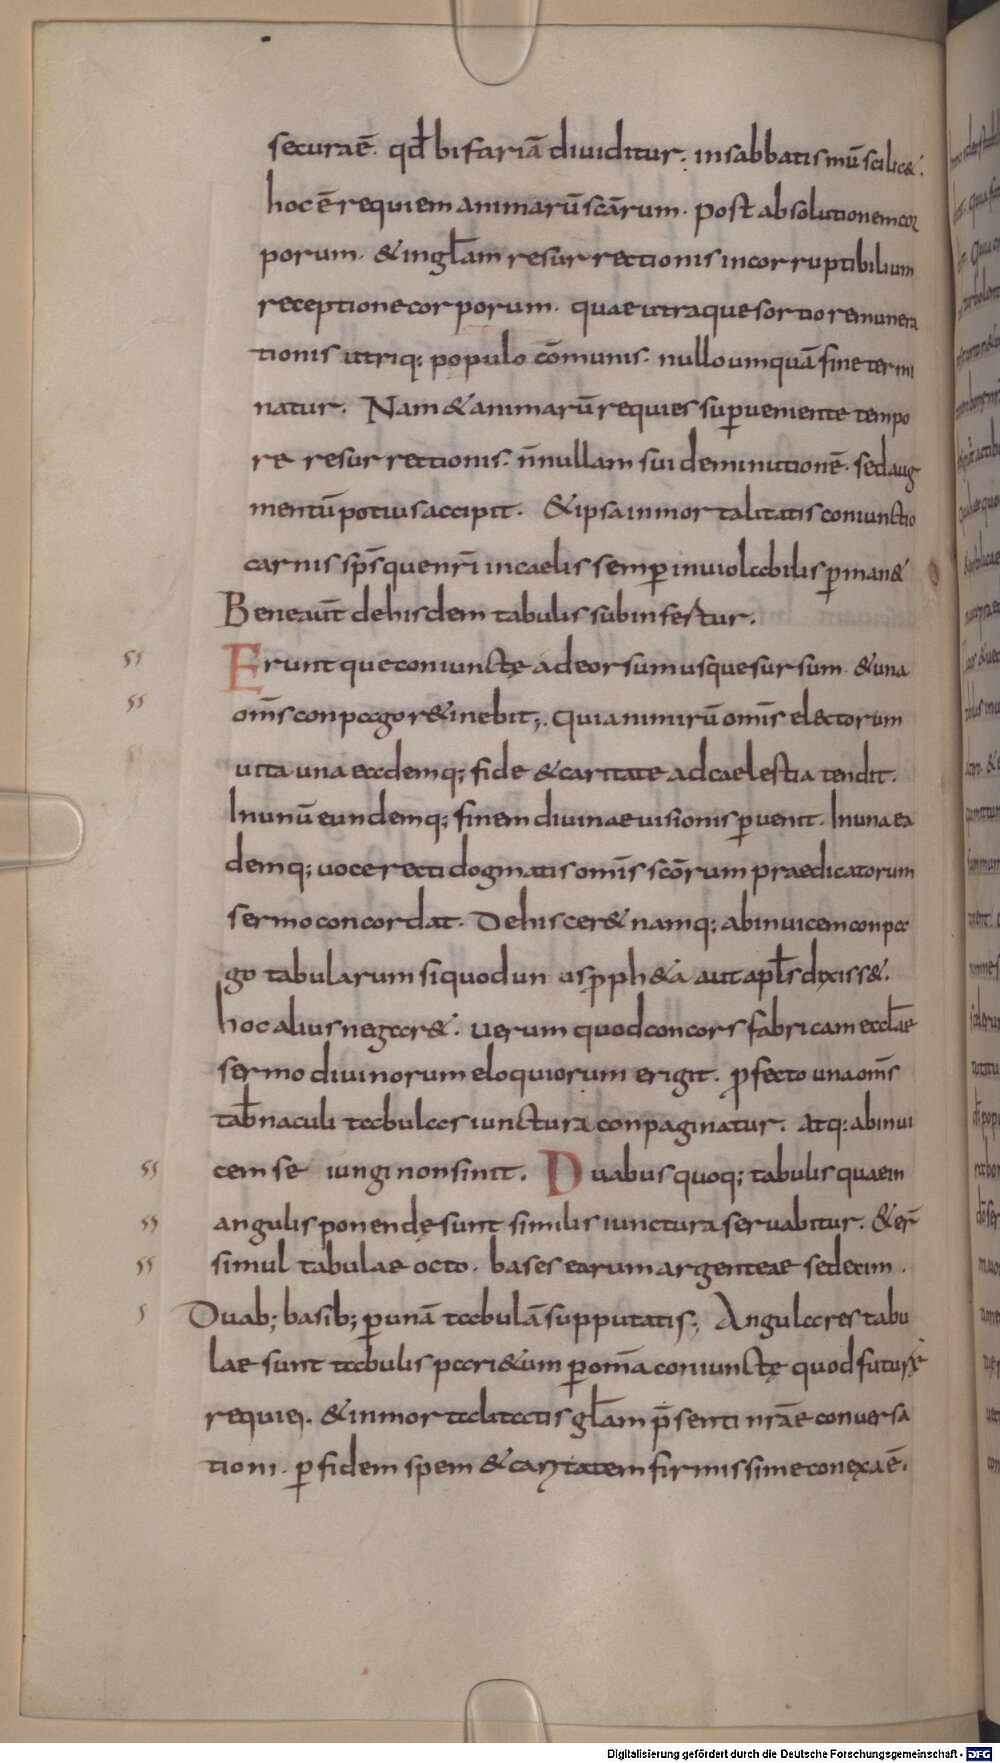 securaē. qđ bifariā diuiditur; in sabbatismū scilic&.
hoc ē requiem animarū scārum. post absolutionem cor
porum. & in gl̄am resurrectionis incorruptibilium
receptione corporum. quae utraque sortio remunera
tionis utriq; populo cōmunis. nullo umquā fine termi
natur. Nam & animarū requies superueniente tempo
re resurrectionis. n̄ nullam sui deminutionē. sed aug
mentū potius accipit. & ipsa inmortalitatis coniunctio
carnis sps̄que nr̄i in caelis semper inuiolabilis ꝑman&
Bene aūt de hisdem tabulis subinfertur.
Erunt que coniunctę a deorsum usque sursum. & una
om̄s conpago r&inebit;. Quia nimirū om̄s electorum
uita una eademq; fide & caritate ad caelestia tendit.
In unū eundemq; finem diuinae uisionis ꝑuenit. In una ea
demq; uoce recti dogmatis om̄s scōrum praedicatorum
sermo concordat. Dehiscer& namq; ab inuicem conpa
go tabularum si quod unus ꝓph&a aut apl̄s dixiss&.
hoc alius negar&. uerum quod concors fabricam eccl̄ae
sermo diuinorum eloquiorum erigit. ꝓfecto una om̄s
tab̄naculi tabulas iunctura conpaginatur. atq; ab inui
cem se iungi non sinit. Duabus quoq; tabulis quae in
angulis ponendę sunt similis iunctura seruabitur. & er̄
simul tabulae octo. bases earum argenteae sedecim.
Duab; basib; ꝑ unā tabulā supputatis; Angulares tabu
lae sunt tabulis pari&um ꝑ om̄a coniunctę quod futurę
requiei. & inmortalitatis gl̄am p̄senti nr̄ae conuersa
tioni. ꝑ fidem spem & caritatem firmissime conexa ē.
Digitalisierung gefördert durch die Deutsche Forschungsgemeinschaft - DFG